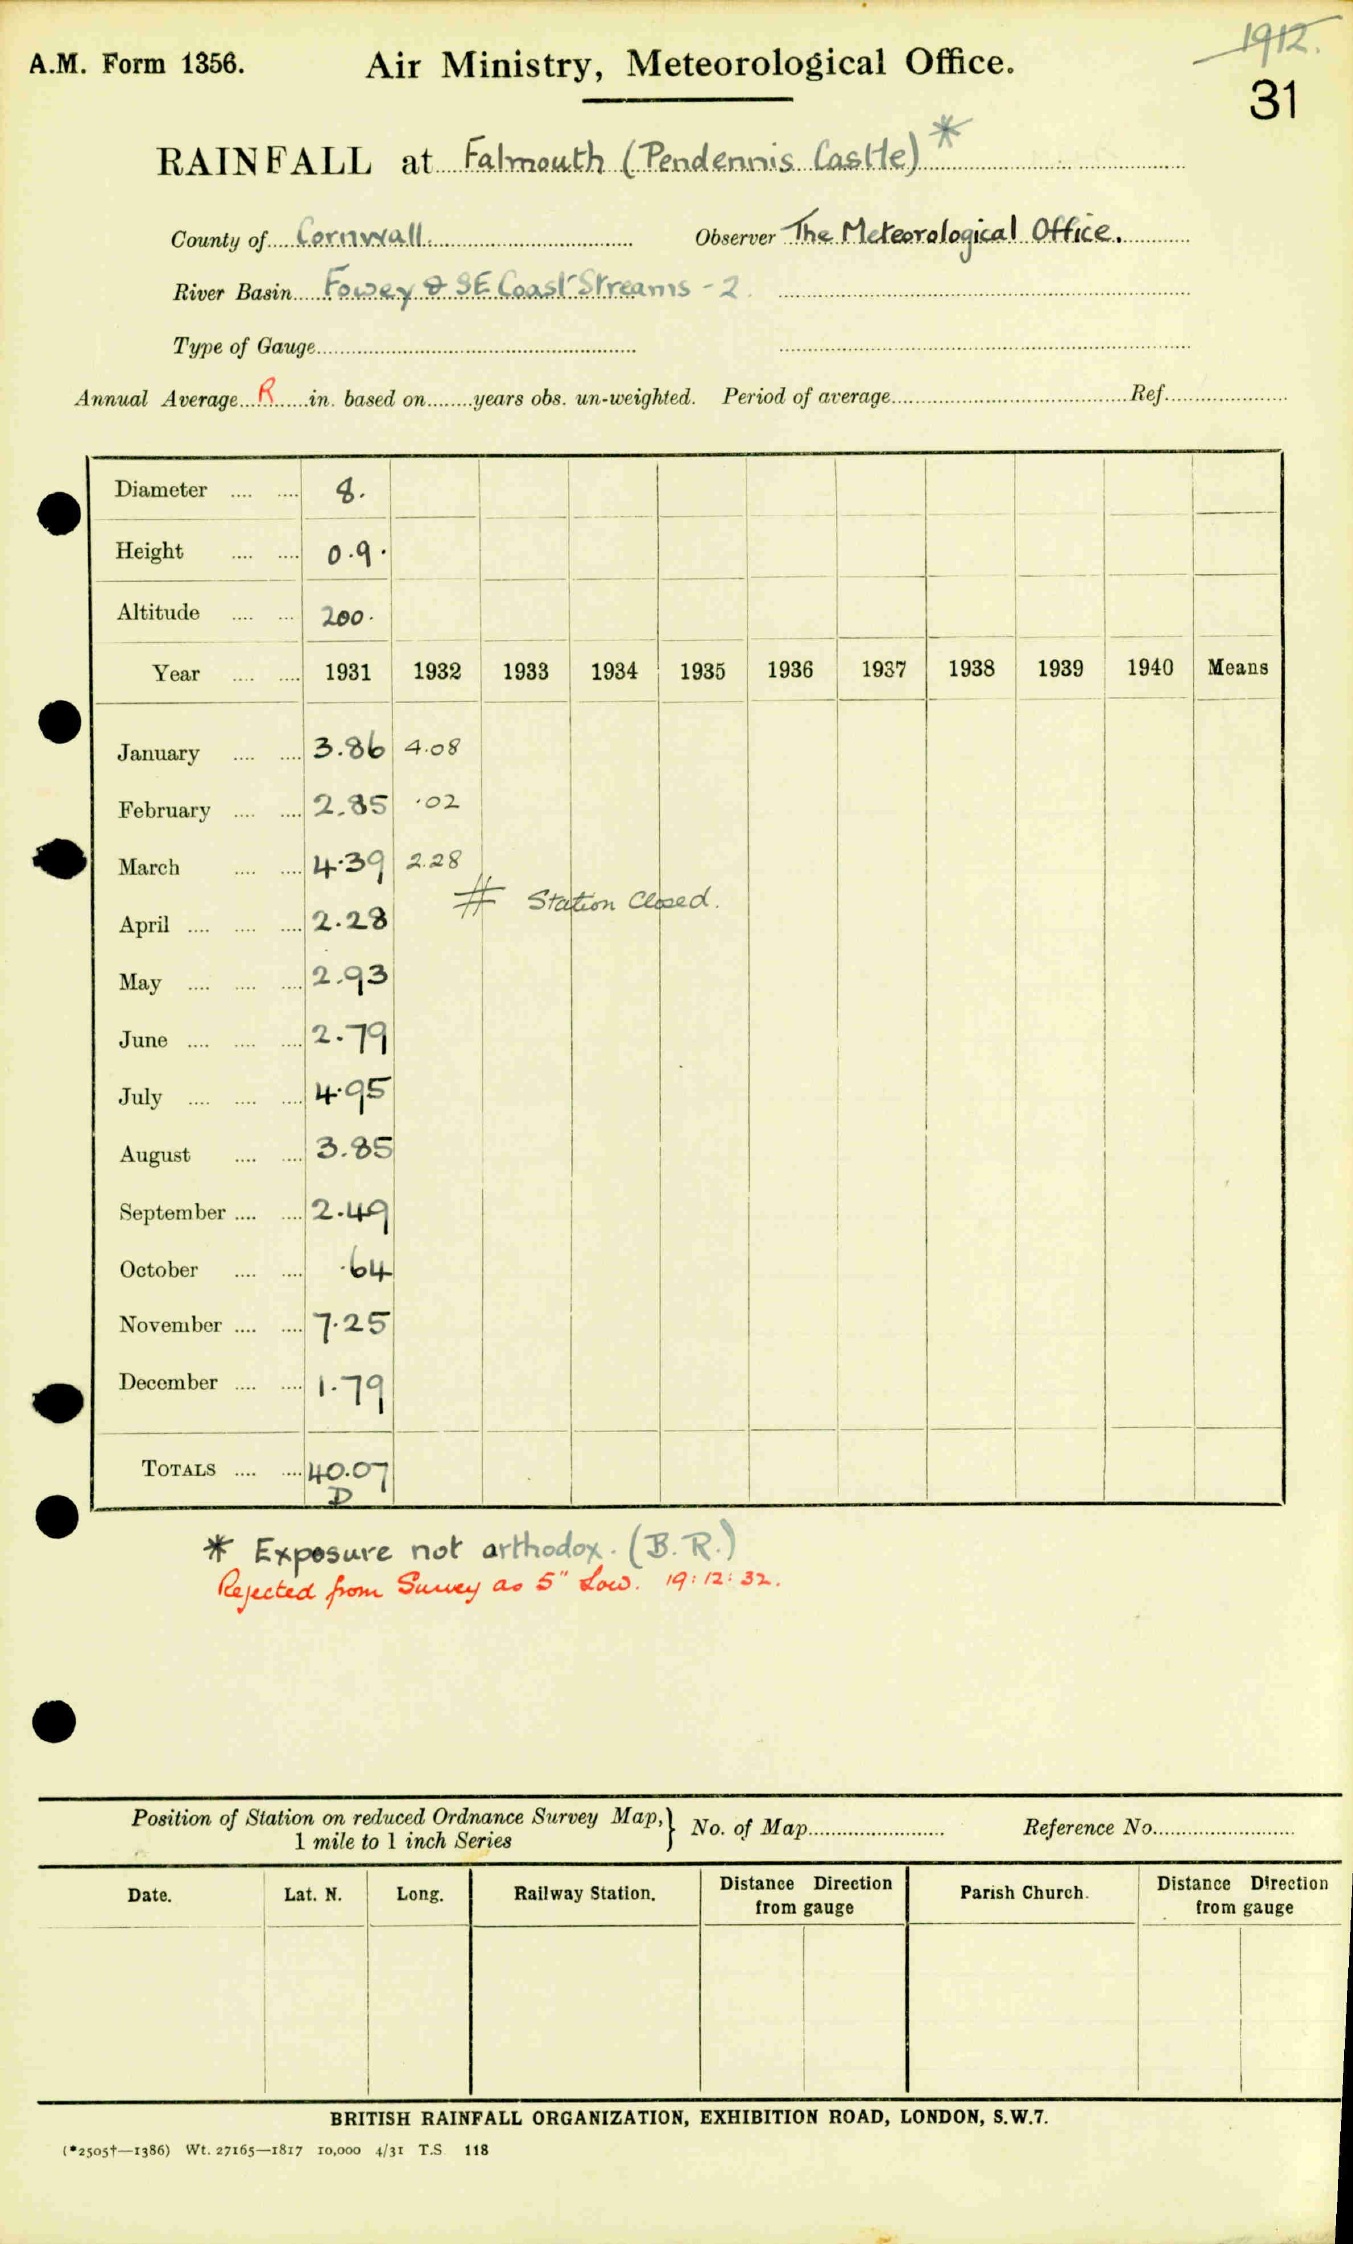 1912.
A.M. Form 1356. Air Ministry, Meteorological Office.
31
RAINFALL at Falmouth (Pendennis Castle) *
County of Cornwall. Observer The Meteorological Office.
River Basin Fowey & SE Coast Streams - 2
Type of Gauge
Annual Average R in. based on years obs. un-weighted. Period of average Ref.
Diameter 8.
Height 0.9.
Altitude 200.
Year 1931 1932 1933 1934 1935 1936 1937 1938 1939 1940 Means
January 3.86 4.08
February 2.85 .02
March 4.39 2.28
# Station Closed.
April 2.28
May 2.93
June 2.79
July 4.95
August 3.85
September 2.49
October .64
November 7.25
December 1.79
TOTALS 40.07
D
* Exposure not orthodox. (B.R.)
Rejected from Survey as 5" Low. 19:12:32.
Position of Station on reduced Ordnance Survey Map, } No. of Map Reference No.
1 mile to 1 inch Series
Date. Lat. N. Long. Railway Station. Distance Direction from gauge Parish Church. Distance Direction from gauge
BRITISH RAINFALL ORGANIZATION, EXHIBITION ROAD, LONDON, S.W.7.
(*2505†—1386) Wt. 27165—1817 10,000 4/31 T.S. 118